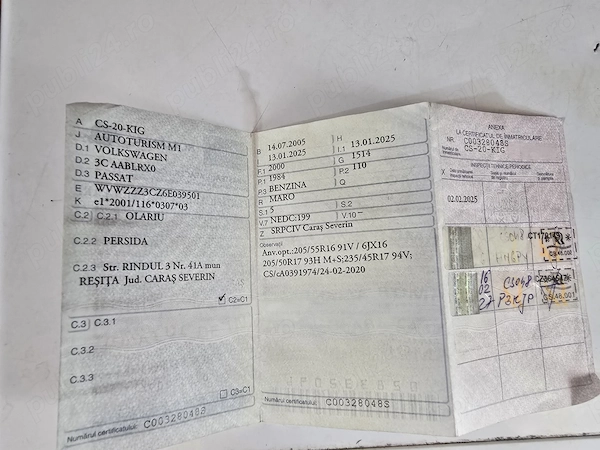 A CS-20-KIG
J AUTOTURISM M1
D.1 VOLKSWAGEN
D.2 3C AABLRX0
D.3 PASSAT
E WVWZZZ3CZ6E039501
K e1*2001/116*0307*03
C.2 C.2.1 OLARIU
C.2.2 PERSIDA
C.2.3 Str. RINDUL 3 Nr. 41A mun
REȘIȚA Jud. CARAȘ SEVERIN
C2=C1
C.3 C.3.1
C.3.2
C.3.3
C3=C1
Numărul certificatului: C00328048S
B 14.07.2005 H
I 13.01.2025 I.1 13.01.2025
F.1 2000 G 1514
P.1 1984 P.2 110
P.3 BENZINA Q
R MARO
S.1 5 S.2
V.7 NEDC:199 V.10 -
Z SRPCIV Caraș Severin
Observații
Anv.opt.:205/55R16 91V / 6JX16
205/50R17 93H M+S;235/45R17 94V;
CS/cA0391974/24-02-2020
Numărul certificatului: C00328048S
ANEXA
LA CERTIFICATUL DE ÎNMATRICULARE
NR. C00328048S
CS-20-KIG
INSPECȚII TEHNICE PERIODICE
X
02.02.2025
16
02
27
CS048
P3KJP